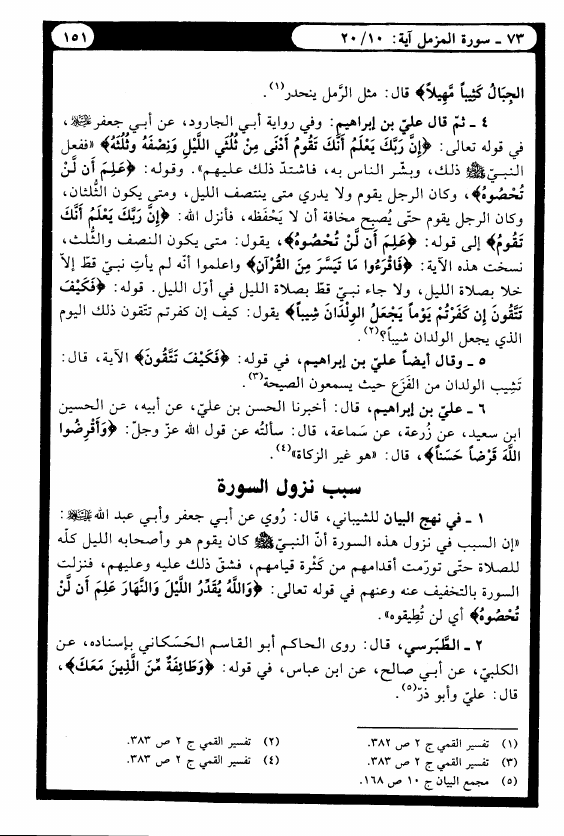 ٧٣ ـ سورة المزمل آية: ٢٠/١٠
١٥١
الجِبَالُ كَثِيباً مَّهِيلاً﴾ قال: مثل الرَّمل ينحدر(١).
٤ ـ ثمّ قال عليّ بن إبراهيم: وفي رواية أبي الجارود، عن أبي جعفر عليه السلام،
في قوله تعالى: ﴿إِنَّ رَبَّكَ يَعْلَمُ أَنَّكَ تَقُومُ أَدْنَى مِنْ ثُلُثَيِ اللَّيْلِ وَنِصْفَهُ وَثُلُثَهُ﴾ «ففعل
النبيّ ﷺ ذلك، وبشّر الناس به، فاشتدّ ذلك عليهم». وقوله: ﴿عَلِمَ أَن لَّنْ
تُحْصُوهُ﴾، وكان الرجل يقوم ولا يدري متى ينتصف الليل، ومتى يكون الثُلثان،
وكان الرجل يقوم حتّى يُصبح مخافة أن لا يَحْفَظه، فأنزل الله: ﴿إِنَّ رَبَّكَ يَعْلَمُ أَنَّكَ
تَقُومُ﴾ إلى قوله: ﴿عَلِمَ أَن لَّنْ تُحْصُوهُ﴾، يقول: متى يكون النصف والثُلث،
نسخت هذه الآية: ﴿فَاقْرَءُوا مَا تَيَسَّرَ مِنَ القُرْآنِ﴾ واعلموا أنّه لم يأتِ نبيّ قطّ إلاّ
خلا بصلاة الليل، ولا جاء نبيّ قطّ بصلاة الليل في أوّل الليل. قوله: ﴿فَكَيْفَ
تَتَّقُونَ إِن كَفَرْتُمْ يَوْماً يَجْعَلُ الوِلْدَانَ شِيباً﴾ يقول: كيف إن كفرتم تتّقون ذلك اليوم
الذي يجعل الولدان شيباً؟(٢).
٥ ـ وقال أيضاً عليّ بن إبراهيم، في قوله: ﴿فَكَيْفَ تَتَّقُونَ﴾ الآية، قال:
تَشِيب الولدان من الفَزَع حيث يسمعون الصيحة(٣).
٦ ـ عليّ بن إبراهيم، قال: أخبرنا الحسن بن عليّ، عن أبيه، عن الحسين
ابن سعيد، عن زُرعة، عن سَماعة، قال: سألتُه عن قول الله عزّ وجلّ: ﴿وَأَقْرِضُوا
اللَّهَ قَرْضاً حَسَناً﴾، قال: «هو غير الزكاة»(٤).
سبب نزول السورة
١ ـ في نهج البيان للشيباني، قال: رُوي عن أبي جعفر وأبي عبد الله عليه السلام:
«إن السبب في نزول هذه السورة أنّ النبيّ ﷺ كان يقوم هو وأصحابه الليل كلّه
للصلاة حتّى تورّمت أقدامهم من كَثْرة قيامهم، فشقّ ذلك عليه وعليهم، فنزلت
السورة بالتخفيف عنه وعنهم في قوله تعالى: ﴿وَاللَّهُ يُقَدِّرُ اللَّيْلَ وَالنَّهَارَ عَلِمَ أَن لَّنْ
تُحْصُوهُ﴾ أي لن تُطِيقوه».
٢ ـ الطَّبَرسي، قال: روى الحاكم أبو القاسم الحَسَكاني بإسناده، عن
الكلبيّ، عن أبي صالح، عن ابن عباس، في قوله: ﴿وَطَائِفَةٌ مِّنَ الَّذِينَ مَعَكَ﴾،
قال: عليّ وأبو ذرّ(٥).
(١) تفسير القمي ج ٢ ص ٣٨٢.
(٢) تفسير القمي ج ٢ ص ٣٨٣.
(٣) تفسير القمي ج ٢ ص ٣٨٣.
(٤) تفسير القمي ج ٢ ص ٣٨٣.
(٥) مجمع البيان ج ١٠ ص ١٦٨.